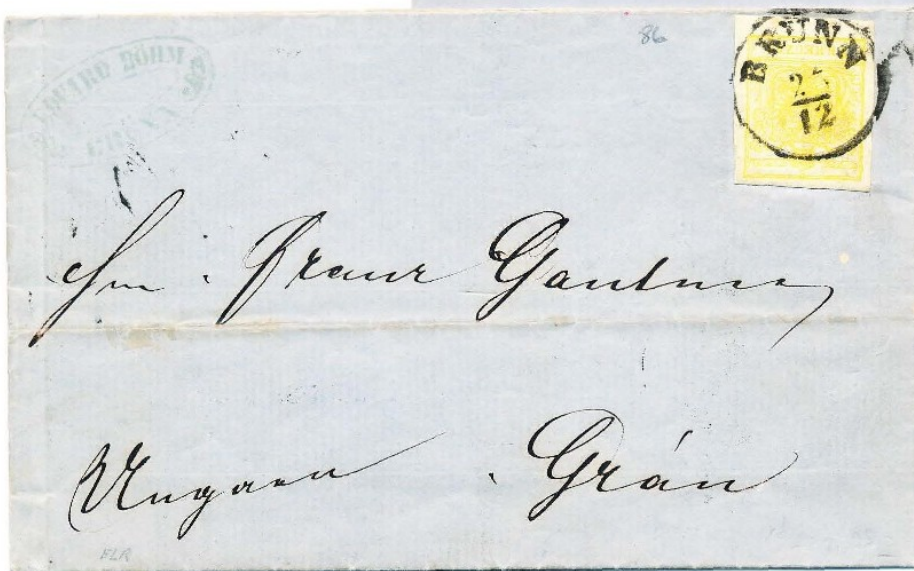 86
EDUARD BÖHM
BRÜNN
BRÜNN
12
Franz Gantner
Ungarn . Grán
FLR